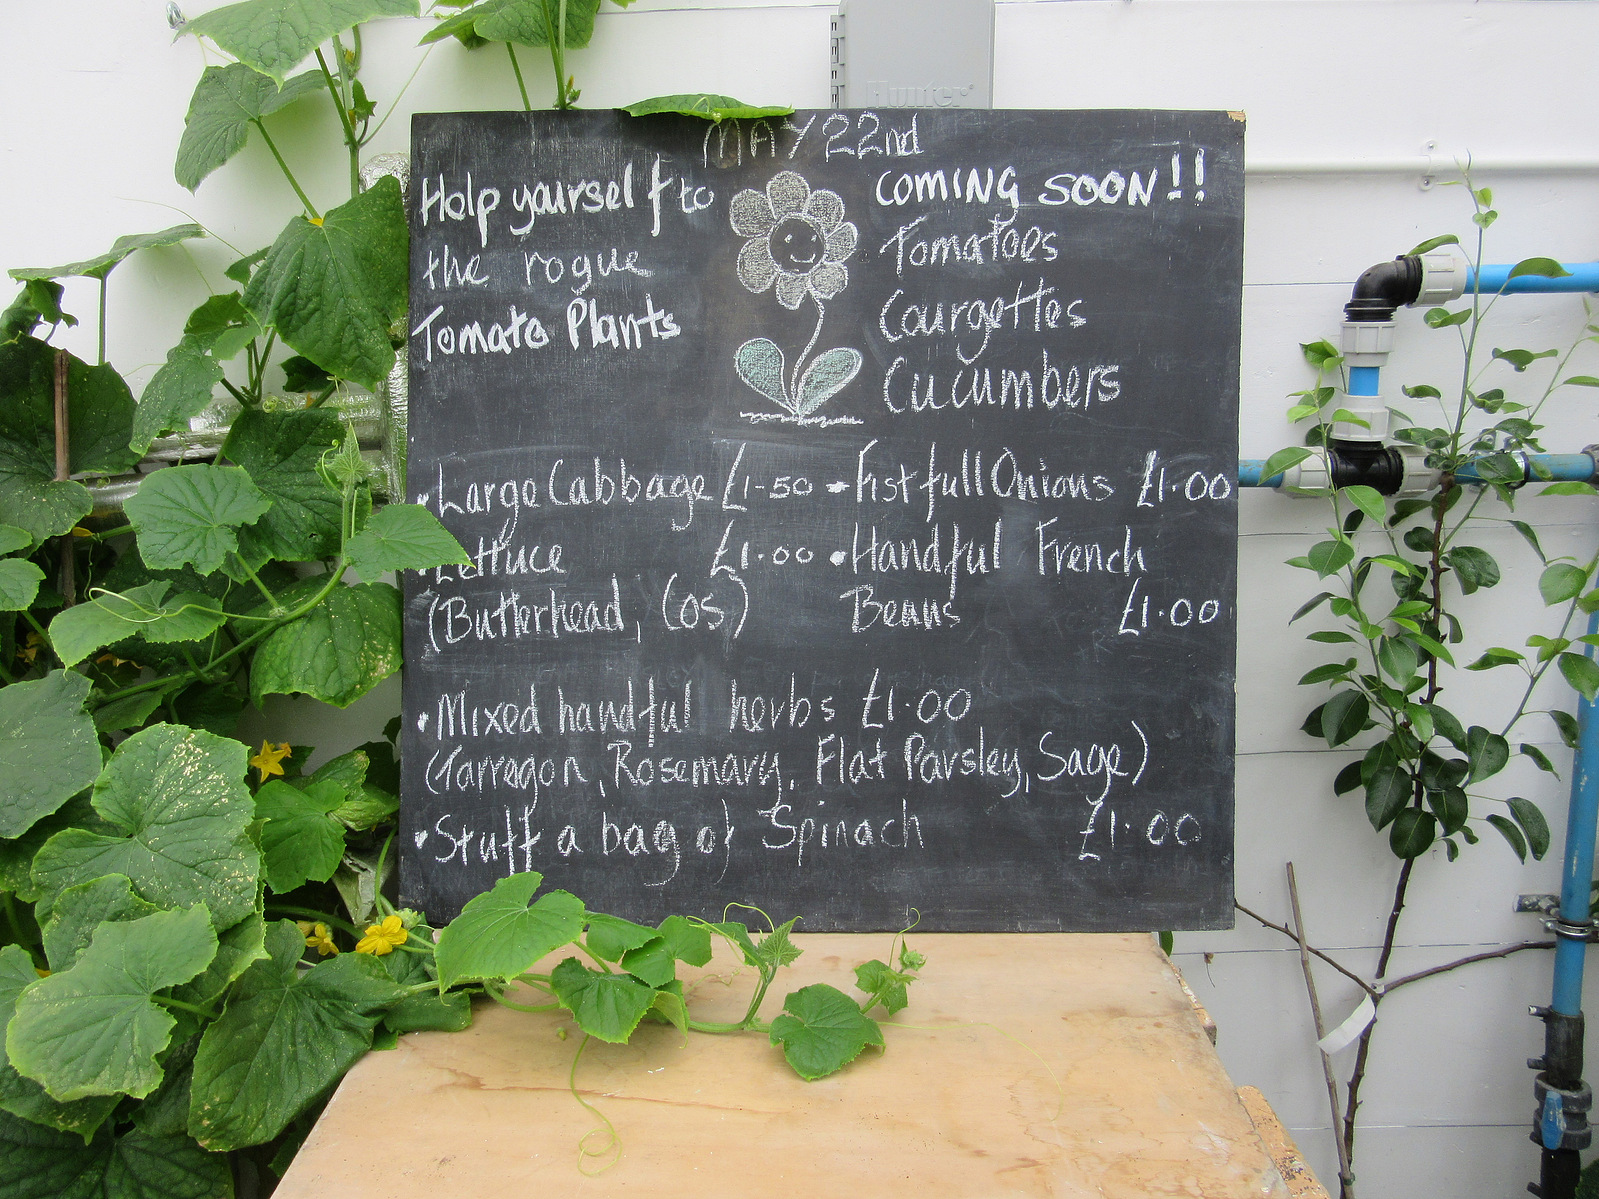 Hunter
MAY 22nd
Help yourself to
the rogue
Tomato Plants
COMING SOON!!
Tomatoes
Courgettes
Cucumbers
• Large Cabbage £1-50
• Lettuce £1.00
(Butterhead, Cos)
• Fistfull Onions £1.00
• Handful French
Beans £1.00
• Mixed handful herbs £1.00
(Tarragon, Rosemary, Flat Parsley, Sage)
• Stuff a bag of Spinach £1.00